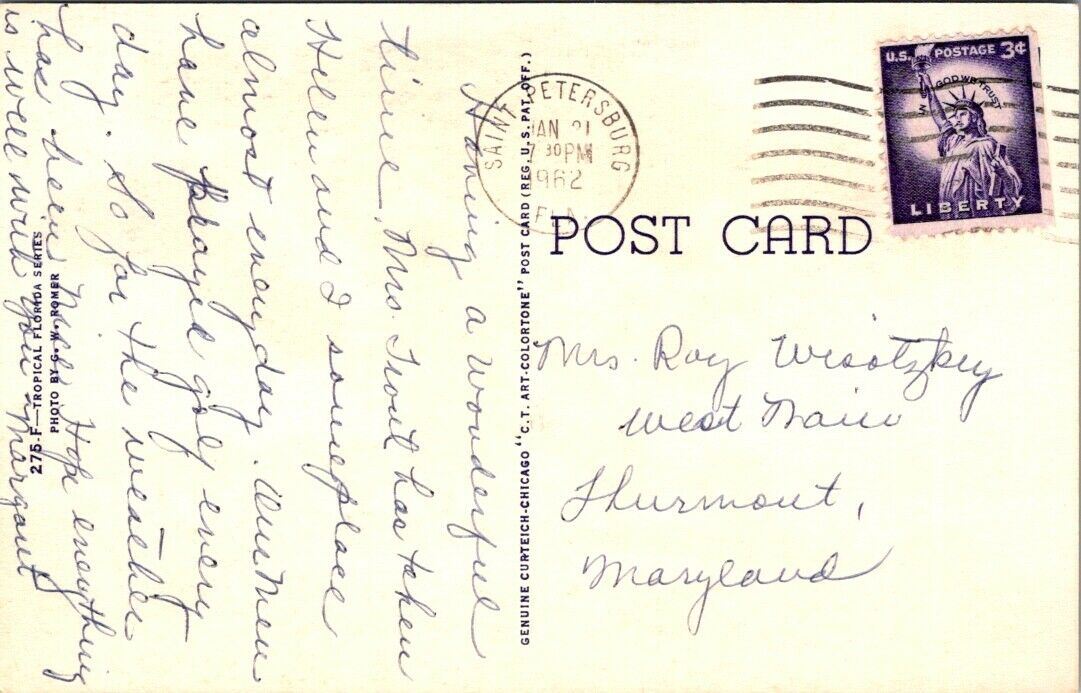 Having a wonderful
time. Mrs. Trout has taken
Helen and I someplace
almost every day. Our Men
have played golf every
day. So far the weather
has been nice. Hope everything
is well with you. Margaret
275-F—TROPICAL FLORIDA SERIES
PHOTO BY G. W. ROMER
GENUINE CURTEICH-CHICAGO "C.T. ART-COLORTONE" POST CARD (REG. U.S. PAT. OFF.)
SAINT PETERSBURG
JAN 21
7 30 PM
1962
FLA.
U.S. POSTAGE 3¢
IN GOD WE TRUST
LIBERTY
POST CARD
Mrs. Roy Wisotzkey
West Main
Thurmont,
Maryland